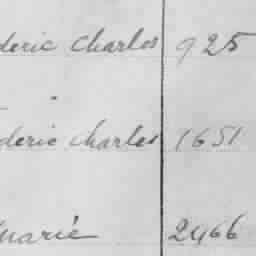 deric Charles 925
"
deric Charles 1651
Marie 2466